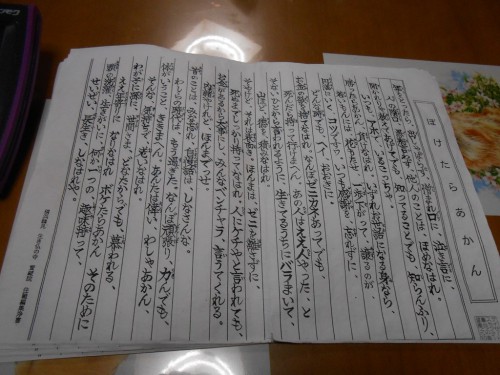 ぼけたらあかん
年をとったら 出しゃばらず、憎まれ口に、泣き言に、
他人のことは ほめなはれ。
知ってることでも 知らんふり、
いつでもアホで いるこっちゃ。
勝ったらあかん 負けなはれ、いずれお世話になる身なら、
若いもんには 花もたせ、一歩下がって 譲るのが
円満にいく コツですわ。いつも感謝を 忘れずに、
どんな時でも、へえ、おおきに
お金の欲を捨てなはれ、なんぼゼニカネあってでも、
死んだら持って 行けまへん あの人はええ人やった、と
生きてるうちにバラまいて、
山ほど徳を 積みなはれ。
それは表向き、ほんまは ゼニを離さずに、
死ぬまでしっかり持ってなはれ 人にケチやと言われても、
お金があるから 大事にし、みんな、ベンチャラ 言うてくれる。
内緒やけれど ほんまでっせ。
昔のことは、みな忘れ 自慢話は しなさんな。
わしらの時代は、もう過ぎた、なんぼ頑張り、力んでも、
体がいうこと、ききまへん、あんたは偉い、わしゃあかん、
そんな、気持ちで おりなはれ。
わが子に孫に、世間さま、どなたからでも、慕われる
ええ年寄りに なりなはれ ボケたらあかん そのために
頭の洗濯 生きがいに、何か一つの 趣味持って、
せいぜい、長生き しなはれや。